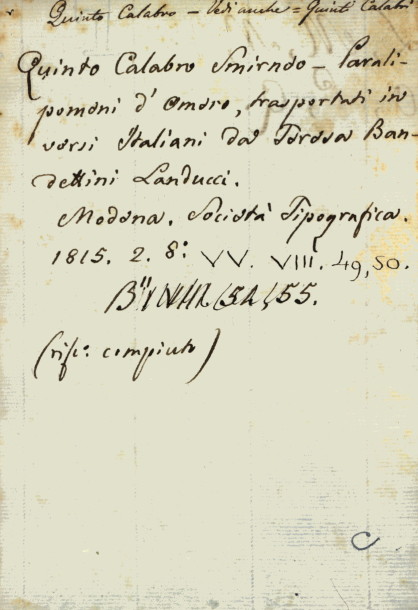 Quinto Calabro - Vedi anche = Quinti Calabri
Quinto Calabro Smirneo - Parali-
pomeni d'Omero, trasportati in
versi Italiani da Teresa Ban-
dettini Landucci.
Modena. Società Tipografica.
1815. 2. 8: VV. VIII. 49, 50.
54, 55.
(risc: compiuto)
C